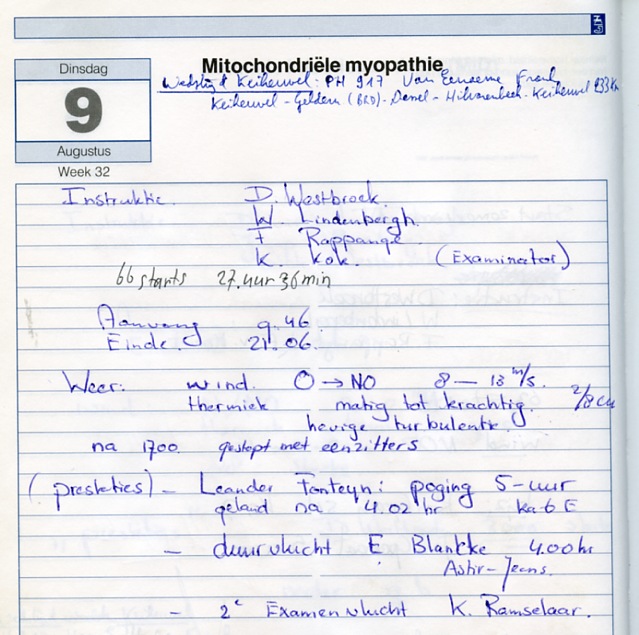 Dinsdag
9
Augustus
Week 32
Mitochondriële myopathie
Wedstrijd Keiheuvel: PH 917 Van Eenaeme Frank
Keiheuvel - Geldern (BRD) - Dessel - Hilvarenbeek - Keiheuvel 233 km
Instruktie. D. Westbroek.
W. Lindenbergh.
F Rappange.
K. Kok. (Examinator)
66 starts 27.uur 36 min
Aanvang 9.46
Einde. 21.06.
Weer: wind. O → NO 8 — 13 m/s.
thermiek matig tot krachtig. 2/8 Cu
hevige turbulentie
na 1700. gestopt met eenzitters
(prestaties) - Leander Fonteyn: poging 5-uur
geland na 4.02 hr Ka 6 E
- duurvlucht E Blancke 4.00 hr
Astir-Jeans.
- 2e Examenvlucht K. Ramselaar.